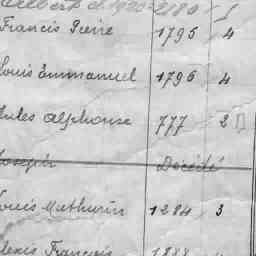 Albert d. 1920 2180 1
Francis Pierre 1795 4
Louis Emmanuel 1796 4
Jules Alphonse 777 2
Joseph Décédé
Louis Mathurin 1284 3
Alexis François 1888